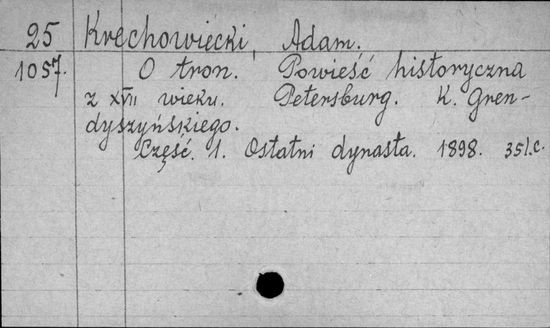 25 Krechowiecki, Adam.
1057. O tron. Powieść historyczna
z XVII wieku. Petersburg. K. Gren-
dyszyńskiego.
Część. 1. Ostatni dynasta. 1898. 351.c.